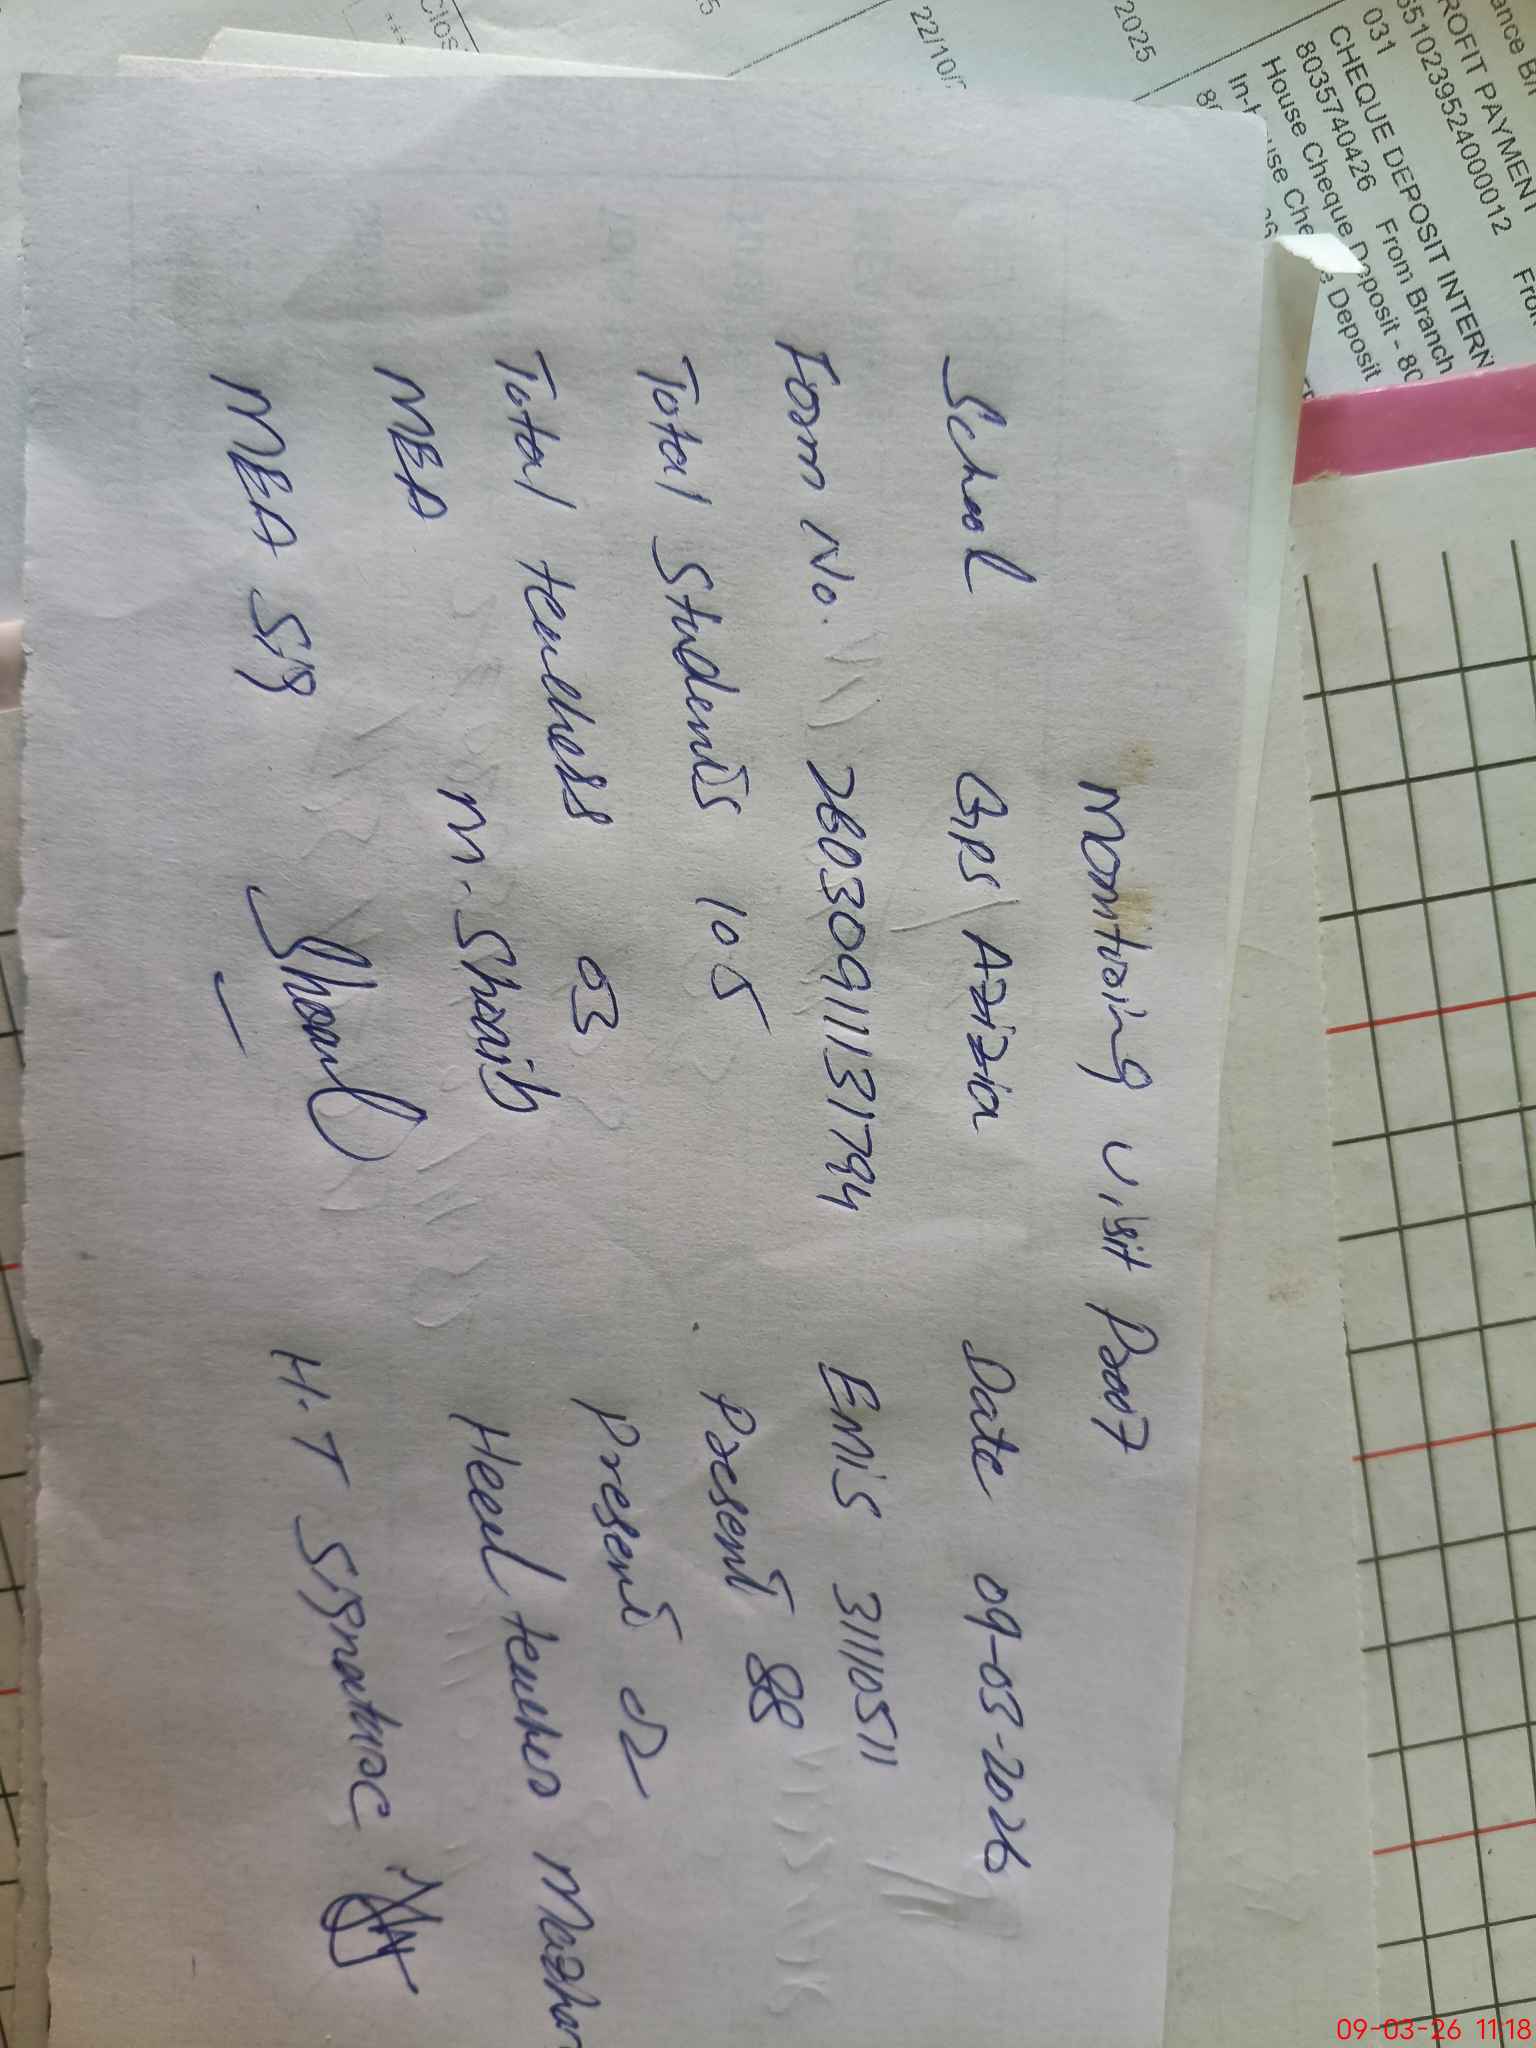 Monitiring visit Proof
School GPS Azizia Date 09-03-2026
Form No. 26030911131794 EMIS 31110511
Total Students 105 Present 88
Total teachers 03 Present 02
MEA M. Shoaib Head teacher Mazhar
MEA Sig Shoaib H.T Signature
22/10/
2025
031
PROFIT PAYMENT
CHEQUE DEPOSIT INTERN
8035740426 From Branch
House Cheque Deposit - 80
09-03-26 11:18